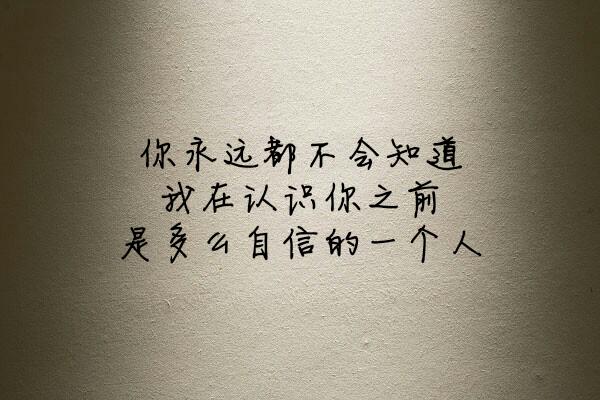 你永远都不会知道
我在认识你之前
是多么自信的一个人